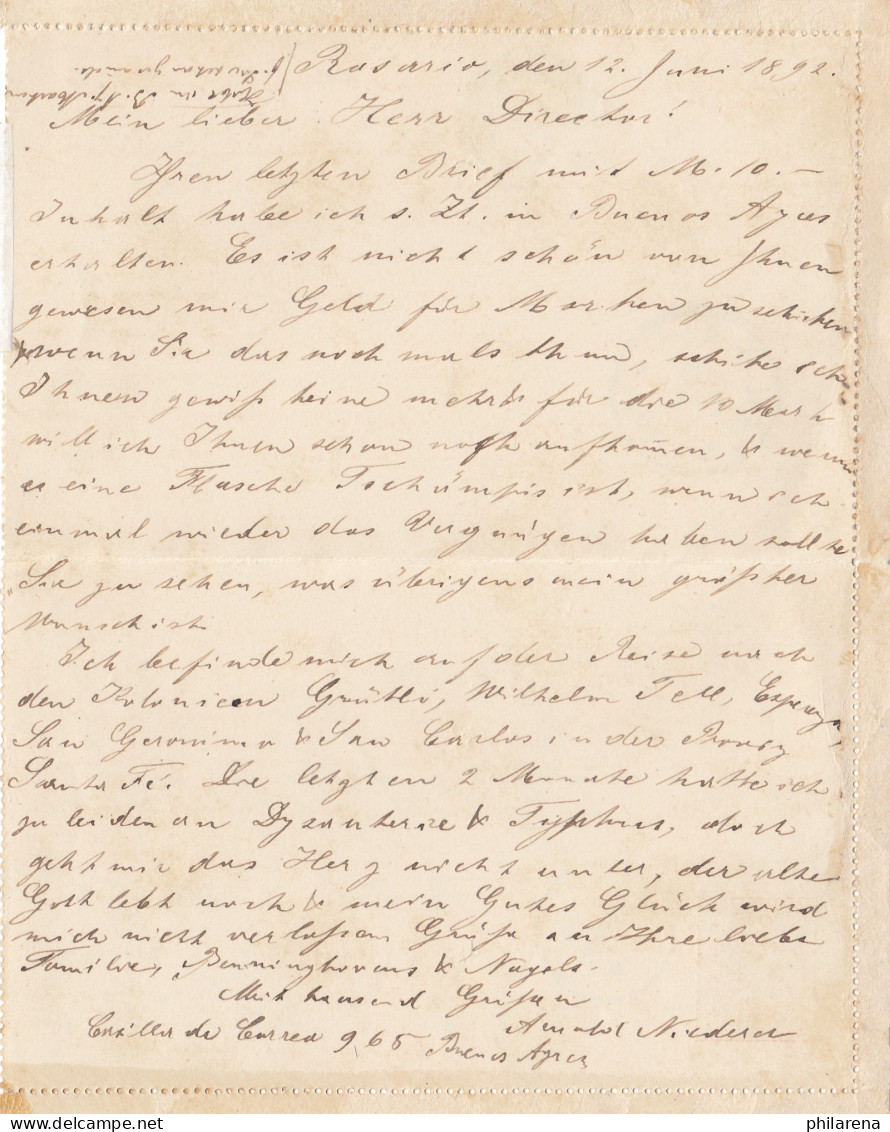 Rosario, den 12. Juni 1892.
Mein lieber Herr Director!
Ihren letzten Brief mit M. 10.–
Inhalt habe ich s. Zt. in Buenos Ayres
erhalten. Es ist nicht schön von Ihnen
gewesen mir Geld für Marken zu schicken
wenn Sie das nochmals thun, schike ich
Ihnen gewiß keine mehr & für die 10 Mark
will ich Ihnen schon noch aufkom̅en, & wenn
es eine Flasche ist, wenn ich
einmal wieder das Vergnügen haben sollte
Sie zu sehen, was übrigens mein größter
Wunsch ist.
Ich befinde mich auf der Reise nach
den Kolonieen Grütli, Wilhelm Tell, Esperanza,
San Geronimo & San Carlos in der Provinz
Santa Fé. Die letzten 2 Monate hatte ich
zu leiden an Dysenterie & Typhus, doch
geht mir das Herz nicht unter, der alte
Gott lebt noch & mein Gutes Glück wird
mich nicht verlaßen Grüße an Ihre liebe
Familie, Benninghovens & Nagels.
Mit tausend Grüßen
Arnold Niederer
Casilla de Correo 965 Buenos Ayres
philarena